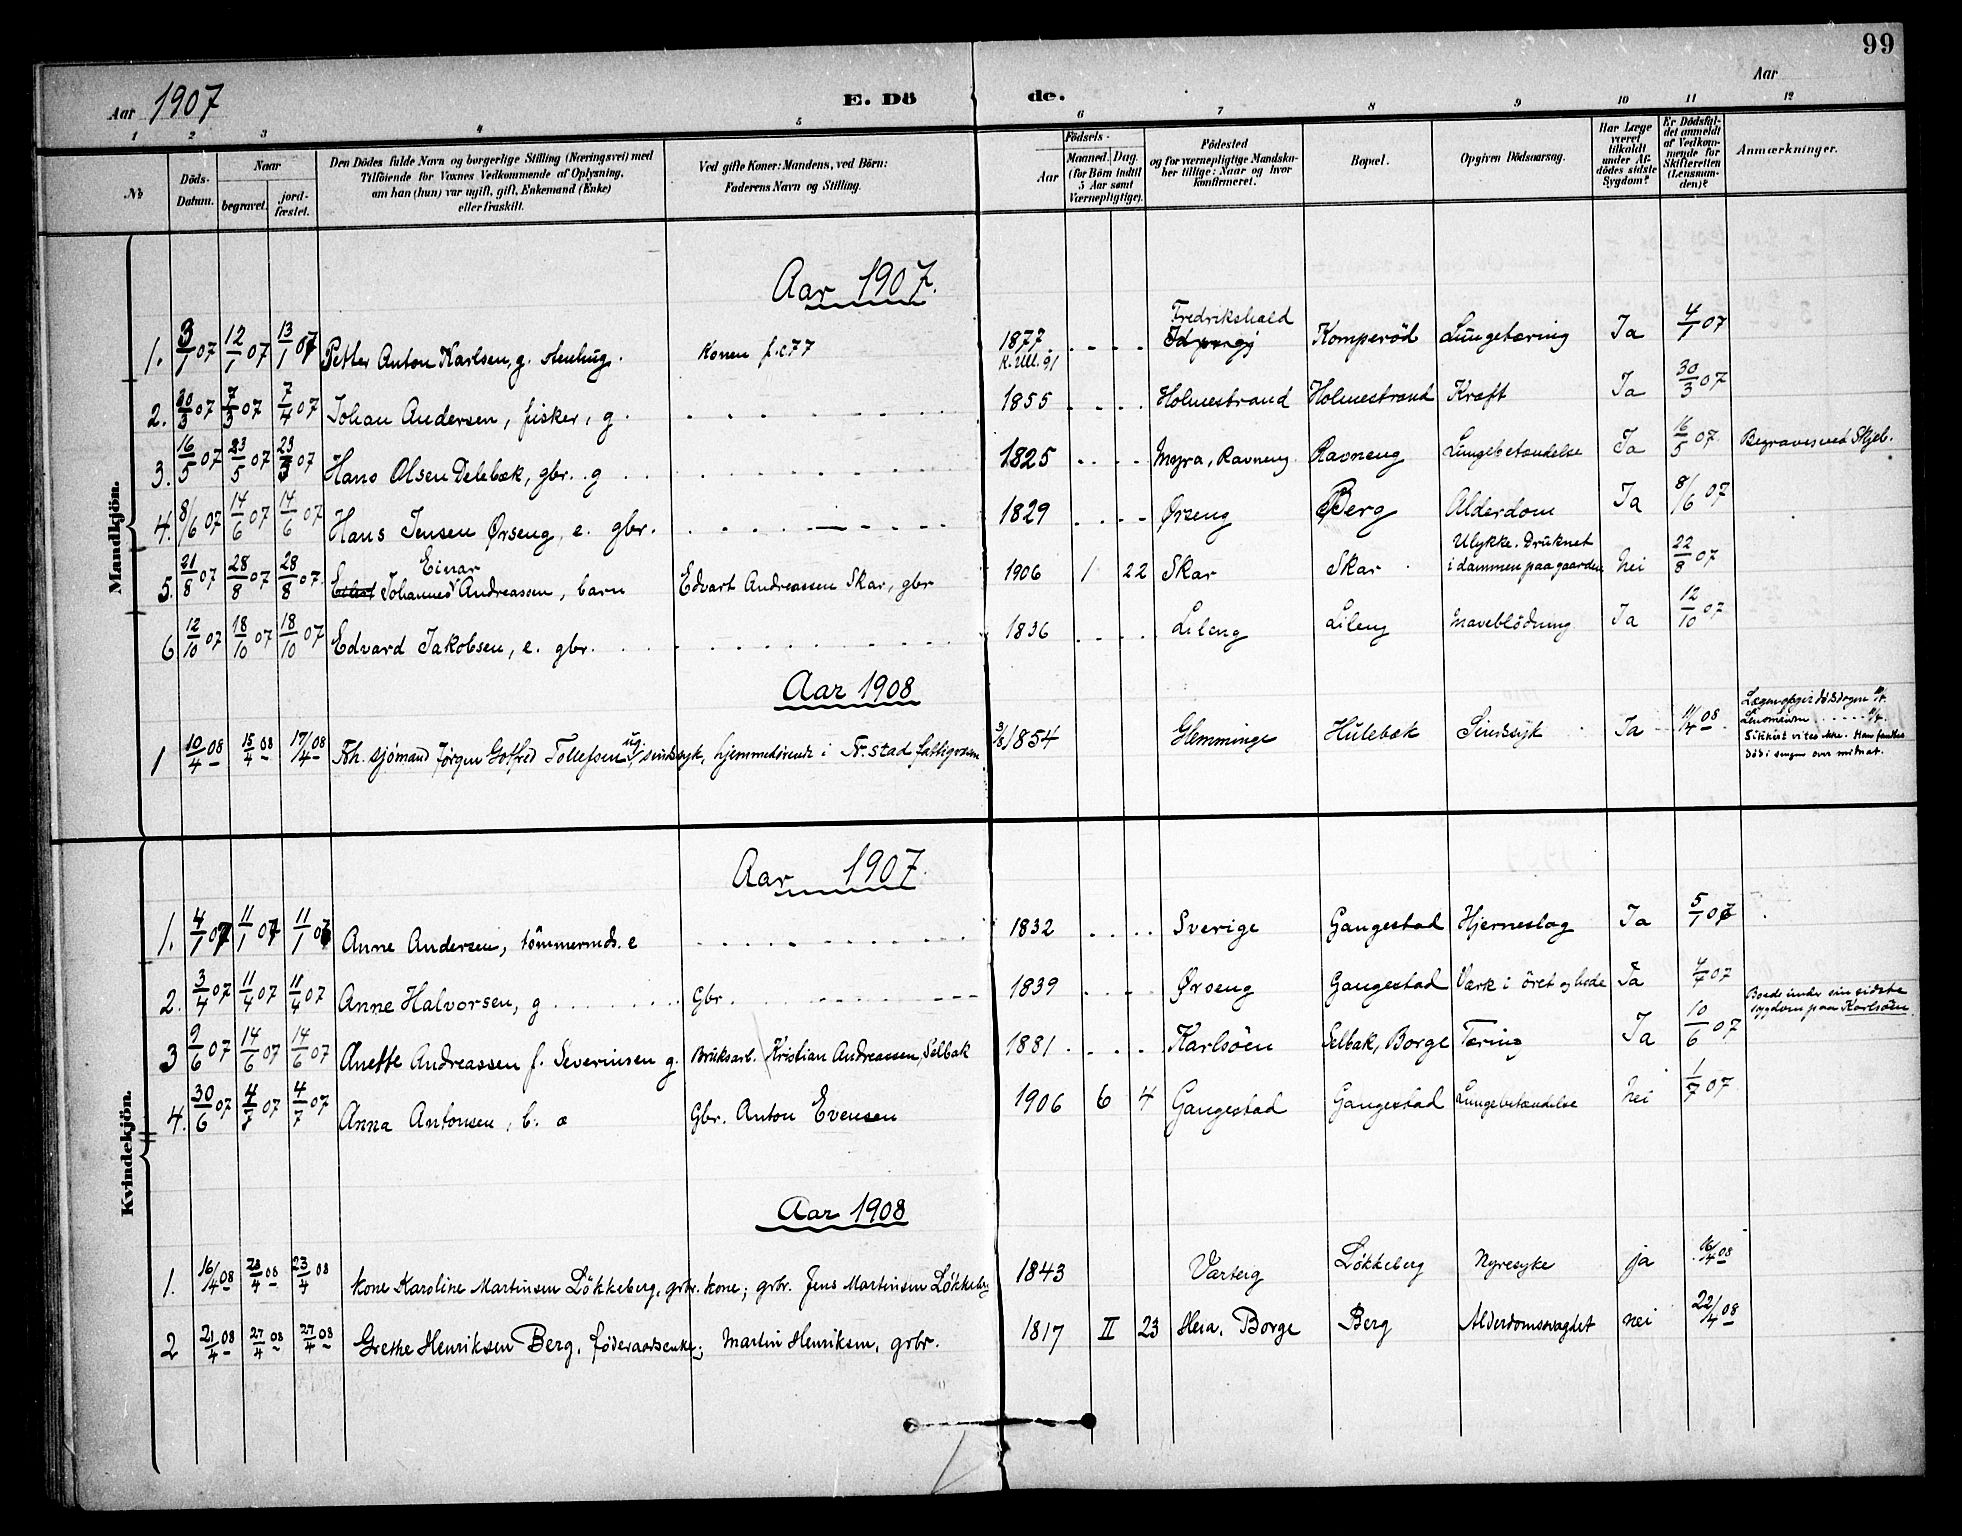 99
Aar 1907 E. Dö de. Aar
1 2 3 4 5 6 7 8 9 10 11 12
No
Döds-Datum.
Naar
begravet.
jord-fæstet.
Den Dödes fulde Navn og borgerlige Stilling (Næringsvei) med
Tilföiende for Voxnes Vedkommende af Oplysning,
om han (hun) var ugift, gift, Enkemand (Enke)
eller fraskilt.
Ved gifte Koner: Mandens, ved Börn:
Faderens Navn og Stilling.
Födsels-
Aar
Maaned. Dag.
(for Börn indtil
5 Aar samt
Værnepligtige).
Födested
og for værnepligtige Mandska-
ber tillige: Naar og hvor
konfirmeret.
Bopæl.
Opgiven Dödsaarsag.
Har Læge
været
tilkaldt
under Af-
dödes sidste
Sygdom?
Er Dödsfal-
det anmeldt
af Vedkom-
mende for
Skifteretten
(Lensman-
den)?
Anmærkninger.
Mandkjön.
Aar 1907.
1. 3/1 07 12/1 07 13/1 07 Petter Anton Karlsen, g. stenhug. Konen f. c. 77 1877 Fredrikshald Komperöd Lungetæring Ja 4/1 07
2. 30/3 07 7/3 07 7/4 07 Johan Andersen, fisker, g. 1855 Holmestrand Holmestrand Kræft Ja 30/3 07
3. 16/5 07 23/5 07 23/5 07 Hans Olsen Delebæk, gbr. g 1825 Myra, Ravneng Ravneng Lungebetændelse Ja 16/5 07. Begraves ved Skjeb.
4. 8/6 07 14/6 07 14/6 07 Hans Jensen Ørseng, e. gbr. 1829 Ørseng Berg Alderdom Ja 8/6 07
5. 21/8 07 28/8 07 28/8 07. Johannes Einar Andreassen, barn Edvart Andreassen Skar, gbr 1906 1 22 Skar Skar Ulykke. Druknet
i dammen paa gaarden Nei 22/8 07
6 12/10 07 18/10 07 18/10 07 Edvard Jakobsen, e. gbr. 1836 Lileng Lileng Maveblödning Ja 12/10 07
Aar 1908
1 10/4 08 15/4 08 17/4 08 Fh. sjömand Jörgen Gotfred Tollefsen, ug. sindssyk, hjemmehörende i Fr.stad fattigvæsen 3/8 1854 Glemminge Hulebæk Sindssyk Ja 11/4 08 Lægen opgir dödsdagen
Lensmanen
Sikkert vites ikke. Han fandtes
död i sengen over midnat.
Kvindekjön.
Aar 1907.
1. 4/1 07 11/1 07 11/1 07 Anne Andersen, tömmermds. e 1832 Sverige Gangestad Hjerneslag Ja 5/1 07
2. 3/4 07 11/4 07 11/4 07 Anne Halvorsen, g Gbr. 1839 Ørseng Gangestad Værk i öret og hode Ja 4/4 07
3 9/6 07 14/6 07 14/6 07 Anette Andreassen f. Severinsen g. Bruksarb. Kristian Andreassen, Selbak 1881 Karlsöen Selbak, Borge Tæring Ja 10/6 07 Boede under sin sidste
sygdom paa Karlsöen
4. 30/6 07 4/7 07 4/7 07 Anna Antonsen, b. æ Gbr. Anton Evensen 1906 6 4 Gangestad Gangestad Lungebetændelse Nei 1/7 07
Aar 1908
1. 16/4 08 23/4 08 23/4 08 Kone Karoline Martinsen Løkkeberg, grbr. kone; grbr. Jens Martinsen Løkkeb. 1843 Varterg Løkkeberg Nyresyke ja 16/4 08
2 21/4 08 27/4 08 27/4 08 Grethe Henriksen Berg, føderaadsenke; Martin Henriksen, grbr. 1817 II 23 Borge Berg Alderdomssvaghet nei 22/4 08